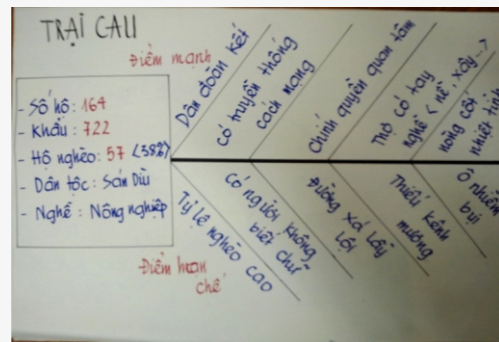 TRẠI CAU
Điểm mạnh
- Số hộ: 164
- Khẩu: 722
- Hộ nghèo: 57 (38%)
- Dân tộc: Sán Dìu
- Nghề: Nông nghiệp
Dân đoàn kết
có truyền thống
cách mạng
chính quyền quan tâm
Thợ có tay
nghề (nề, xây...)
nòng cốt
nhiệt tình
Điểm hạn
chế
Tỷ lệ nghèo cao
có người không
biết chữ
Đường xá lầy
lội
Thiếu kênh
mương
Ô nhiễm
bụi